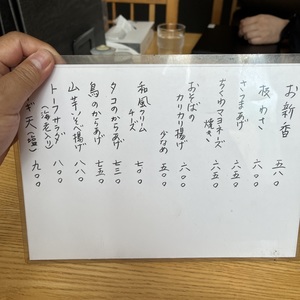 お新香 五五〇
板わさ 六〇〇
さつまあげ 六五〇
ちくわマヨネーズ焼き 六五〇
おそばのカリカリ揚げ 六〇〇
少なめ 五〇〇
和風クリームチーズ 七〇〇
タコのからあげ 七三〇
鳥のからあげ 七五〇
山芋いそべ揚げ 八八〇
トーフサラダ(海老入り) 八〇〇
天(塩) 九〇〇